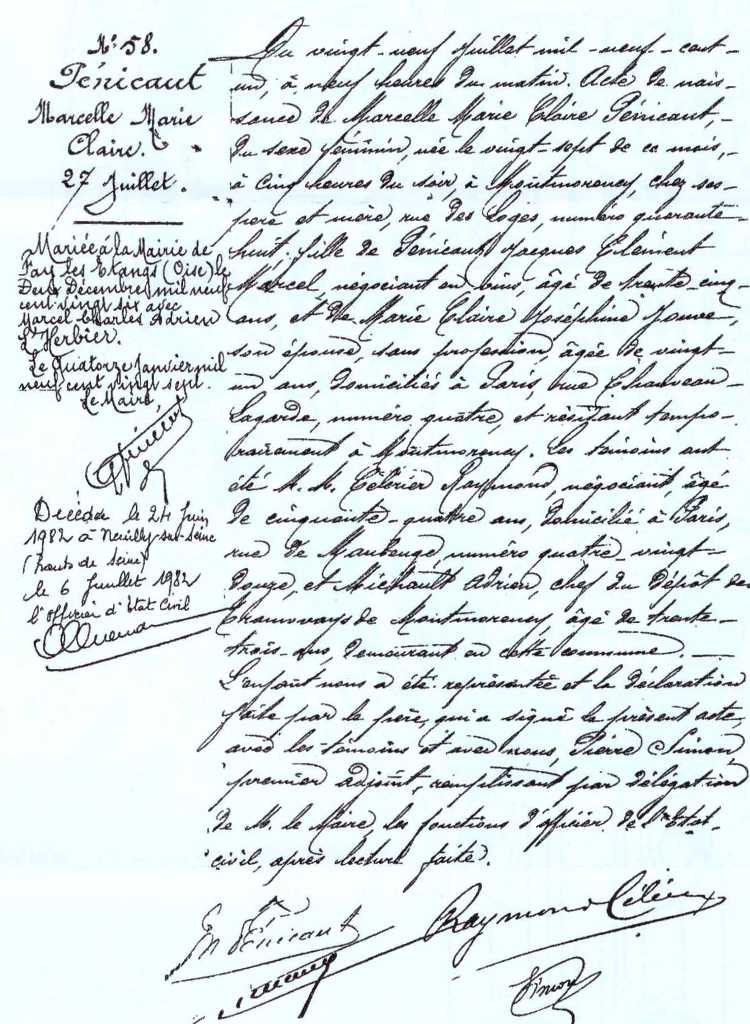 N° 58.
Pénicaut
Marcelle Marie
Claire.
27 Juillet.
Mariée à la Mairie de
Fay les Etangs (Oise) le
Deux Décembre mil neuf
cent vingt six avec
Marcel Charles Adrien
L'Herbier.
Le Quatorze Janvier mil
neuf cent vingt sept.
Le Maire,
Décédée le 24 juin
1982 à Neuilly-sur-Seine
(hauts de seine)
le 6 Juillet 1982
l'officier d'Etat Civil
Du vingt-neuf Juillet mil-neuf-cent-
un, à neuf heures du matin. Acte de nais-
sance de Marcelle Marie Claire Pénicaut,
du sexe féminin, née le vingt-sept de ce mois,
à cinq heures du soir, à Montmorency, chez ses
père et mère, rue des Loges, numéro quarante-
huit; fille de Pénicaut Jacques Clément
Marcel, négociant en vins, âgé de trente-cinq
ans, et de Marie Claire Joséphine Jouve,
son épouse, sans profession, âgée de vingt-
un ans, domiciliés à Paris, rue Chauveau-
Lagarde, numéro quatre, et résidant tempo-
rairement à Montmorency. Les témoins ont
été M.M. Célérier Raymond, négociant, âgé
de cinquante-quatre ans, domicilié à Paris,
rue de Maubeuge, numéro quatre-vingt-
douze, et Michault Adrien, chef du Dépôt des
Tramways de Montmorency, âgé de trente-
trois-ans, demeurant en cette commune. —
L'enfant nous a été représentée et la déclaration
faite par le père, qui a signé le présent acte,
avec les témoins et avec nous, Pierre Simon,
premier adjoint, remplissant par délégation
de M. le Maire, les fonctions d'officier de l'Etat-
civil, après lecture faite.
Pénicaut
Raymond
Simon